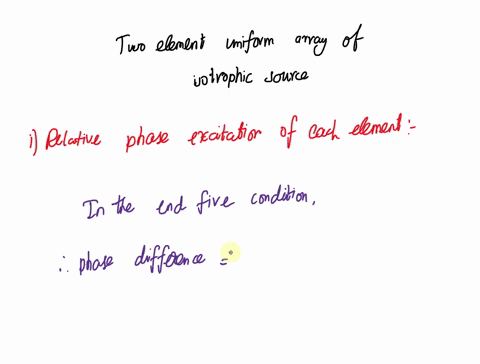 Two element uniform array of
isotrophic source
i) Relative phase excitation of each element:-
In the end five condition,
∴ phase difference =